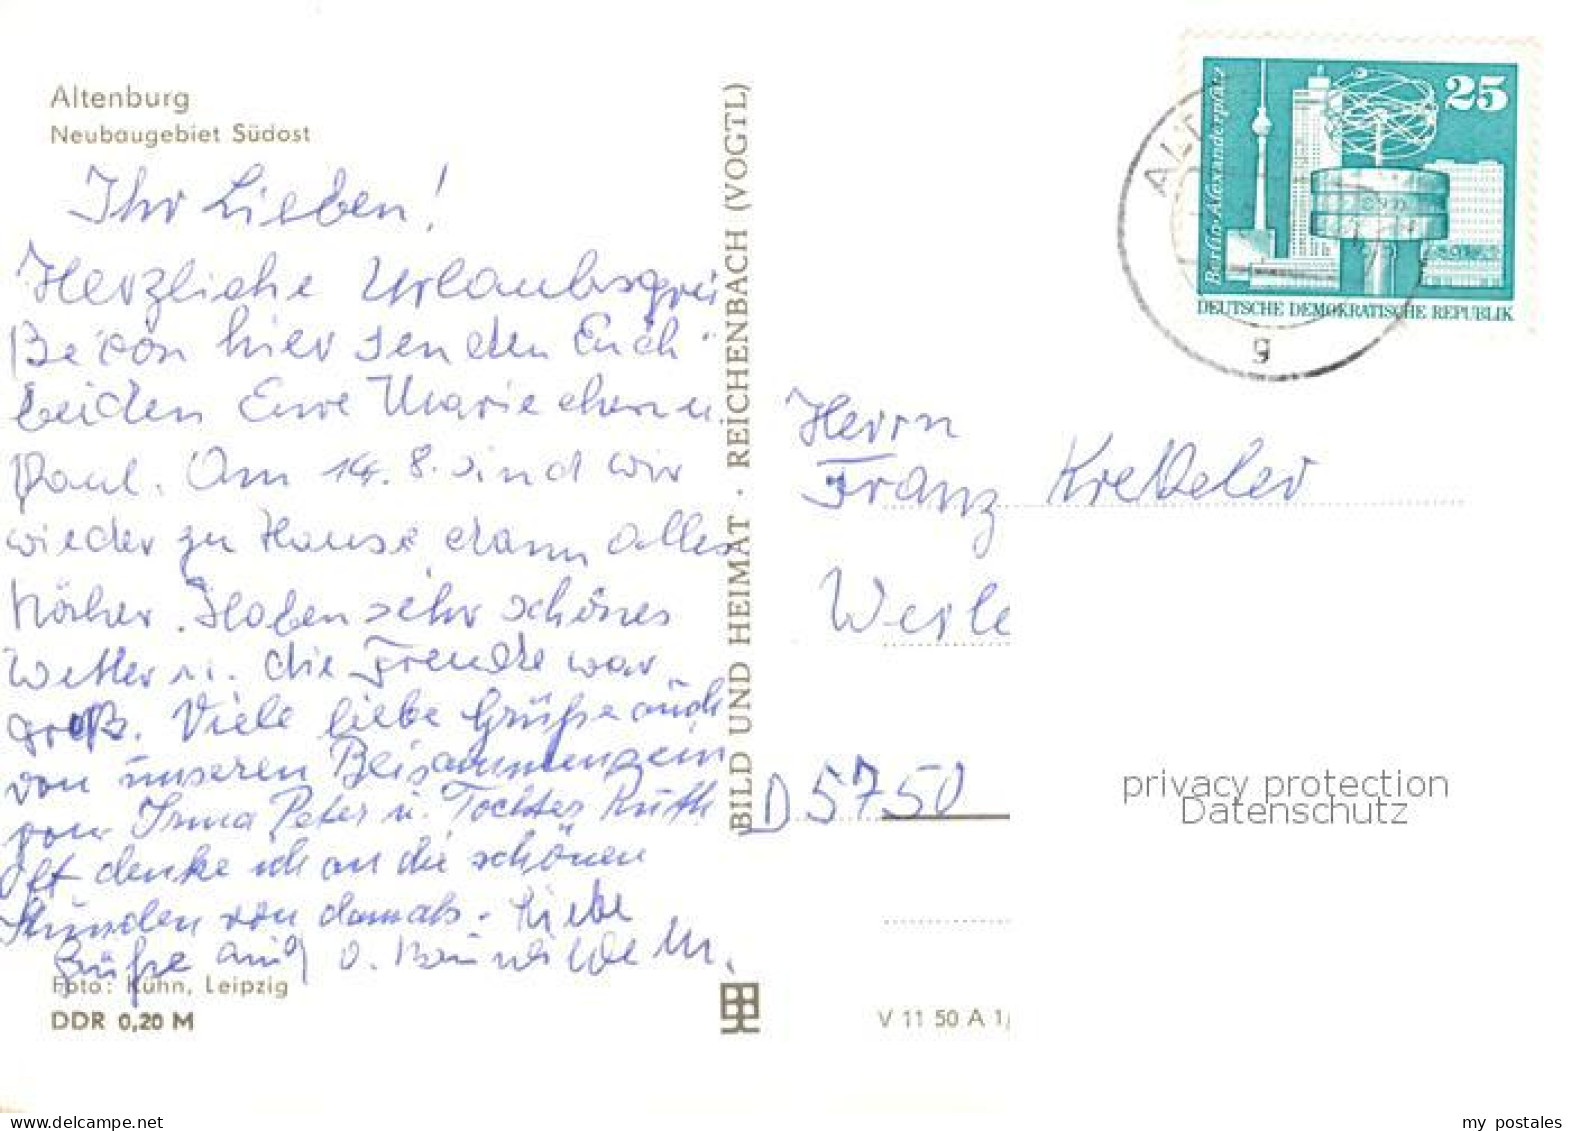 Altenburg
Neubaugebiet Südost
Ihr Lieben!
Herzliche Urlaubsgrü
ße von hier senden Euch
beiden Eure Mariechen u
Paul. Am 14.8. sind wir
wieder zu Hause, dann alles
Näher. Haben sehr schönes
Wetter u. die Freude war
groß. Viele liebe Grüße auch
von unseren Beisammensein
von Irma Peter u. Tochter Ruth
Oft denke ich an die schönen
Stunden von damals. Liebe
Grüße auch v.
Foto: Kühn, Leipzig
DDR 0,20 M
BILD UND HEIMAT · REICHENBACH (VOGTL)
V 11 50 A 1/
Berlin-Alexanderplatz
25
DEUTSCHE DEMOKRATISCHE REPUBLIK
ALT
g
Herrn
Franz
Werle
D 5750
privacy protection
Datenschutz
www.delcampe.net
my_postales